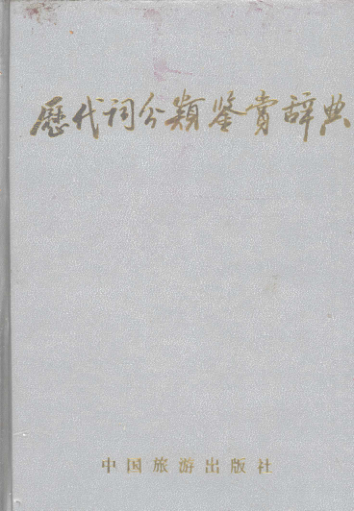 歷代词分類鉴赏辞典
中国旅游出版社